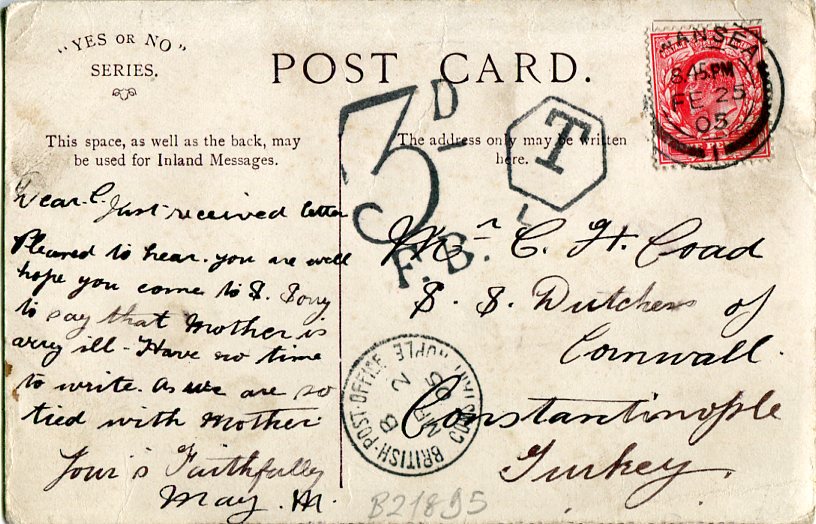 "YES OR NO"
SERIES.
POST CARD.
This space, as well as the back, may
be used for Inland Messages.
The address only may be written
here.
3D
F.B.
T
L
SWANSEA
8.45 PM
FE 25
05
1
Dear C. Just received letter
Pleased to hear. you are well
hope you come to S. Sorry
to say that Mother is
arry ill - Have no time
to write. As we are so
tied with Mother
Your's Faithfully
May. M.
Mr C. H. Coad
S. S. Dutchess of
Cornwall.
Constantinople
Turkey.
BRITISH-POST-OFFICE
CONSTANTINOPLE
B
2
05
B21895